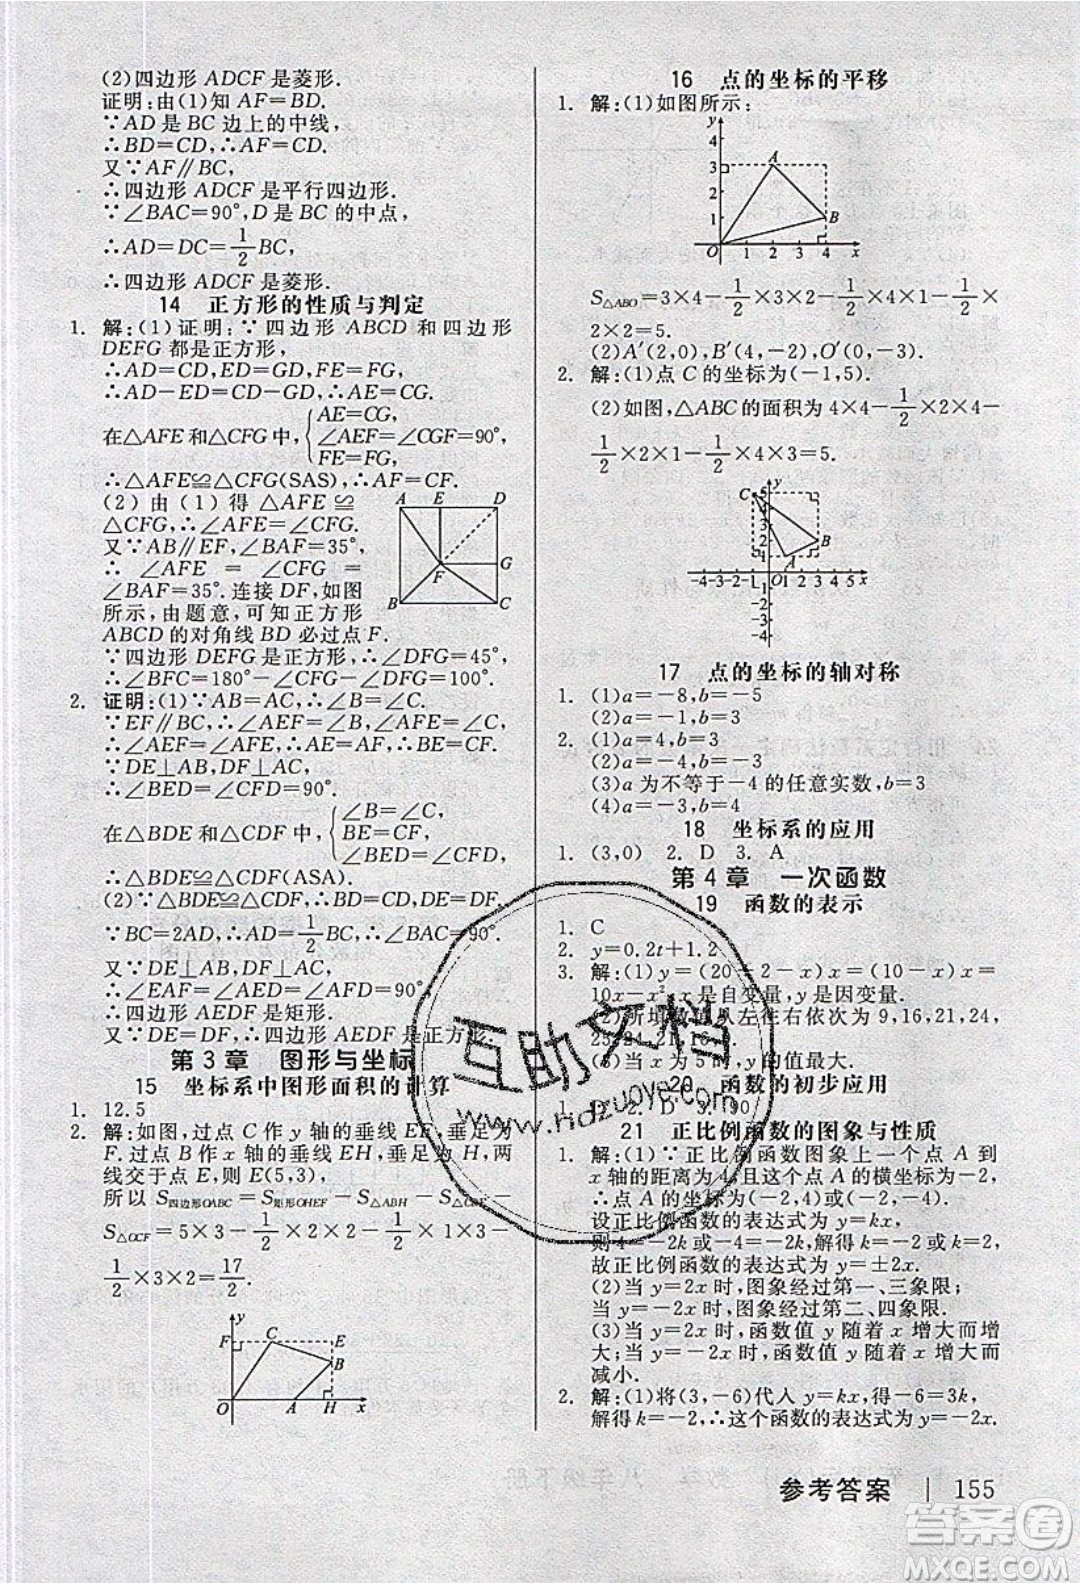 (2)四边形 ADCF 是菱形.
证明:由(1)知 AF=BD.
∵AD 是 BC 边上的中线,
∴BD=CD,∴AF=CD.
又∵AF∥BC,
∴四边形 ADCF 是平行四边形.
∵∠BAC=90°,D 是 BC 的中点,
∴AD=DC=1/2BC,
∴四边形 ADCF 是菱形.
14 正方形的性质与判定
1. 解:(1)证明:∵四边形 ABCD 和四边形
DEFG 都是正方形,
∴AD=CD,ED=GD,FE=FG.
∴AD-ED=CD-GD,∴AE=CG.
在△AFE 和△CFG 中,{AE=CG,
∠AEF=∠CGF=90°,
FE=FG,
∴△AFE≌△CFG(SAS),∴AF=CF.
(2) 由 (1) 得 △AFE ≌
△CFG,∴∠AFE=∠CFG.
又∵AB∥EF,∠BAF=35°,
∴ ∠AFE = ∠CFG =
∠BAF=35°. 连接 DF,如图
所示,由题意,可知正方形
ABCD 的对角线 BD 必过点 F.
∵四边形 DEFG 是正方形,∴∠DFG=45°,
∴∠BFC=180°-∠CFG-∠DFG=100°.
A E D
F G
B C
2. 证明:(1)∵AB=AC,∴∠B=∠C.
∵EF∥BC,∴∠AEF=∠B,∠AFE=∠C,
∴∠AEF=∠AFE,∴AE=AF,∴BE=CF.
∵DE⊥AB,DF⊥AC,
∴∠BED=∠CFD=90°.
在△BDE 和△CDF 中,{∠B=∠C,
BE=CF,
∠BED=∠CFD,
∴△BDE≌△CDF(ASA).
(2)∵△BDE≌△CDF,∴BD=CD=1/2BC.
∵BC=2AD,∴AD=1/2BC,∴∠BAC=90°.
又∵DE⊥AB,DF⊥AC,
∴∠AED=∠AFD=90°,
∴四边形 AEDF 是矩形.
又∵DE=DF,∴四边形 AEDF 是正方形.
第 3 章 图形与坐标
15 坐标系中图形面积的计算
1. 12.5
2. 解:如图,过点 C 作 y 轴的垂线 EF,垂足为
F.过点 B 作 EF 的垂线 EH,垂足为 H,两
线交于点 E,则 E(5,3),
所以 S四边形OABC=S矩形OHEF-S△ABH-S△CBE-
S△OCF=5×3-1/2×2×2-1/2×1×3-
1/2×3×2=17/2.
y
F C E
B
O A H x
16 点的坐标的平移
1. 解:(1)如图所示:
y
4
3 A
2
1 B
O 1 2 3 4 x
S△ABO=3×4-1/2×2×3-1/2×4×1-1/2×
2×2=5.
(2)A′(2,0),B′(4,-2),O′(0,-3).
2. 解:(1)点 C 的坐标为(-1,5).
(2)如图,△ABC 的面积为 4×4-1/2×2×4-
1/2×2×1-1/2×4×3=5.
y
C 5
4
3
2 B
1 A
-4-3-2-1 O 1 2 3 4 5 x
-1
-2
-3
-4
17 点的坐标的轴对称
1. (1)a=-8,b=-5
(2)a=-1,b=3
2. (1)a=4,b=3
(2)a=-4,b=-3
(3)a 为不等于-4 的任意实数,b=3
(4)a=-3,b=4
18 坐标系的应用
1. (3,0) 2. D 3. A
第 4 章 一次函数
19 函数的表示
1. C
2. y=0.2t+1.2
3. 解:(1)y=(20÷2-x)x=(10-x)x=
10x-x²,x 是自变量,y 是因变量.
(2)所填数值从左往右依次为 9,16,21,24,
25,24,21,16,9.
(3)当 x 为 5 时,y 的值最大.
20 函数的初步应用
1. 2. D 3. 90
21 正比例函数的图象与性质
1. 解:(1)∵正比例函数图象上一个点 A 到
x 轴的距离为 4,且这个点 A 的横坐标为-2,
∴点 A 的坐标为(-2,4)或(-2,-4).
设正比例函数的表达式为 y=kx,
则 4=-2k 或-4=-2k,解得 k=-2 或 2,
故正比例函数的表达式为 y=±2x.
(2)当 y=2x 时,图象经过第一、三象限;
当 y=-2x 时,图象经过第二、四象限.
(3)当 y=2x 时,函数值 y 随着 x 增大而增
大;当 y=-2x 时,函数值 y 随着 x 增大而
减小.
2. 解:(1)将(3,-6)代入 y=kx,得-6=3k,
解得 k=-2,∴这个函数的表达式为 y=-2x.
参考答案 | 155
互助文档
www.hdzuoye.com
答案圈
MXQE.COM